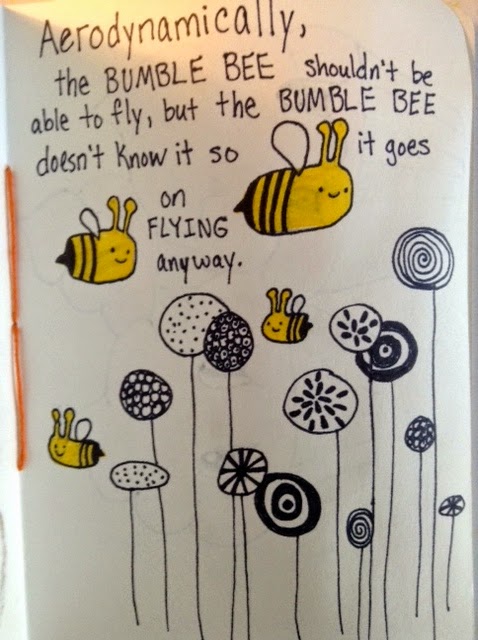 Aerodynamically,
the BUMBLE BEE shouldn't be
able to fly, but the BUMBLE BEE
doesn't know it so it goes
on
FLYING
anyway.